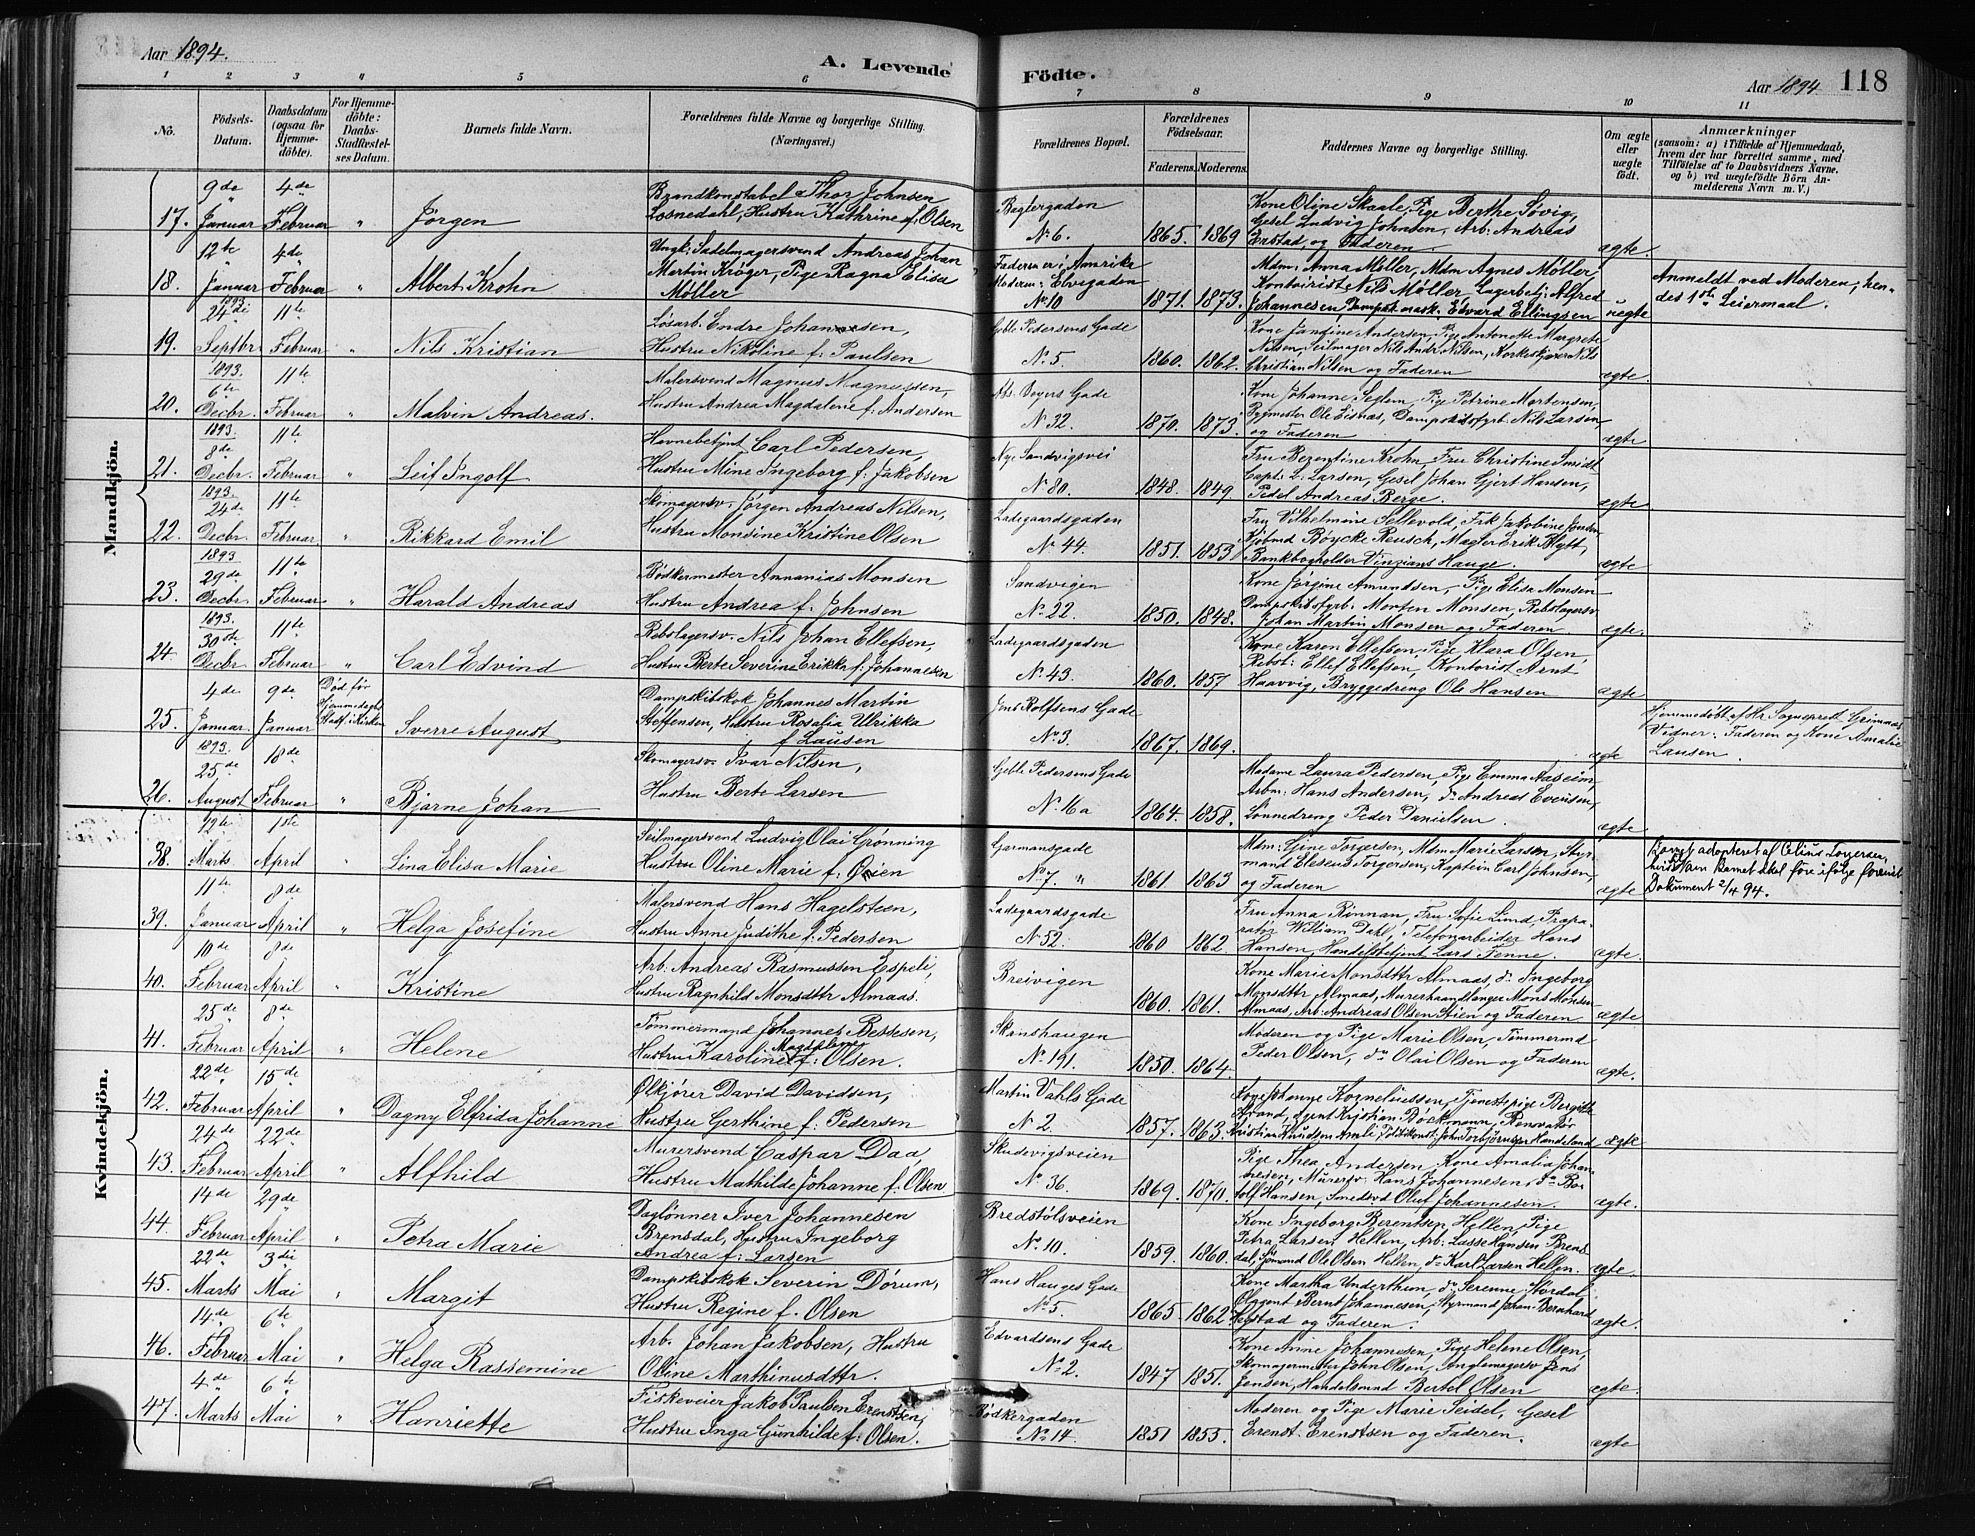 Aar 1894.
A. Levende Födte.
Aar 1894. 118
1 2 3 4 5 6 7 8 9 10 11
No.
Födsels-
Datum.
Daabsdatum
(ogsaa for
Hjemme-
döbte).
For Hjemme-
döbte:
Daabs-
Stadfæstel-
ses Datum.
Barnets fulde Navn.
Forældrenes fulde Navne og borgerlige Stilling.
(Næringsvei.)
Forældrenes Bopæl.
Forældrenes
Födselsaar.
Faderens. Moderens.
Faddernes Navne og borgerlige Stilling.
Om ægte
eller
uægte
födt.
Anmærkninger
(saasom: a) i Tilfælde af Hjemmedaab,
hvem der har forrettet samme, med
Tilföielse af to Daabsvidners Navne,
og b) ved uægtefödte Börn An-
melderens Navn m. V.)
Mandkjön.
17. 9de Januar 4de Februar " Jörgen
Brandkonstabel Thor Johnsen
Losnedahl, Hustru Kathrine f. Olsen
Baglergaden
No 6. 1865. 1869
Kone Oline Skaale, Pige Berthe Søvig,
Gesel Ludvig Johnsen, Arb: Andreas
Enstad, og Faderen. ægte.
18. 12te Januar 4de Februar " Albert Krohn
Ungk: Sadelmagersvend Andreas Johan
Martin Krøger, Pige Ragna Elisa
Møller
Faderen er i Amerika
Moderen: Elvegaden
No 10 1871. 1873.
Mdm: Anna Møller, Mdm Agnes Møller
Kontorist Nils Møller, Lagerbetj: Alfred
Johannesen, Dampsk. mask. Edvard Ellingsen uægte
Anmeldt ved Moderen, hen-
des 1ste Leiermaal.
19. 1893. 24de Septbr. 11te Februar " Nils Kristian
Løsarb. Endre Johannesen,
Hustru Nikoline f. Paulsen
Geble Pedersens Gade
No 5. 1860. 1862.
Kone Jandine Andersen, Pige Antonette Margrete
Nilsen, Seilmager Nils Andr. Nilsen, Korkeskjærer Nils
Christian Nilsen og Faderen ægte.
20. 1893. 6te Decbr. 11te Februar " Malvin Andreas.
Malersvend Magnus Magnussen,
Hustru Andrea Magdalene f. Andersen
Abs. Beyers Gade
No 32. 1870. 1873.
Kone Johanne Siglem, Pige Petrine Mortensen,
Bygmester Ole Eisnæs, Dampskibsfyrb. Nils Larsen
og Faderen ægte
21. 1893. 8de Decbr. 11te Februar " Leif Ingolf
Havnebetjnt Carl Pedersen,
Hustru Mine Ingeborg f. Jakobsen
Nye Sandvigsvei
No 80. 1848. 1849.
Fru Berentine Krohn, Fru Christine Smidt
Capt: L. Larsen, Gesel Johan Gjert Hansen,
Pedel Andreas Berge. ægte
22. 1893. 24de Decbr. 11te Februar " Rikkard Emil
Skomagersv. Jörgen Andreas Nilsen,
Hustru Monsine Kristine Olsen
Ladegaardsgaden
No 44. 1851. 1853.
Fru Vilhelmine Sellevold, Frk Jakobine Jordan
Kjöbmd Böycke Reusch, Mægler Erik Blytt
Bankbogholder Vinzians Hauge. ægte
23. 1893 29de Decbr. 11te Februar " Harald Andreas
Bödkermester Annanias Monsen
Hustru Andrea f. Johnsen
Sandvigen
No 22. 1850. 1848.
Kone Jörgine Amundsen, Pige Elisa Monsen
Dampskibsfyrb. Morten Monsen, Rebslagersv
Johan Martin Monsen og Faderen. ægte
24. 1893. 30de Decbr. 11te Februar " Carl Edvind
Rebslagersv. Nils Johan Ellefsen,
Hustru Berte Severine Erikka f: Johannesen
Ladegaardsgaden
No 43. 1860. 1857
Kone Karen Ellefsen, Pige Klara Olsen
Rebsl: Ellef Ellefsen, Kontorist Arnt
Haavvig, Bryggedreng Ole Hansen ægte
25. 4de Januar. 9de Januar Død før
Hjemmedaabs
Stadf. i Kirken Sverre August
Dampskibskok Johannes Martin
Steffensen, Hustru Rosalia Ulrikka
f. Lausen
Jens Rolfsens Gade
No 3. 1867. 1869. ægte
Hjemmedøbt af Hr. Sogneprest Grimnæs
Vidner: Faderen og Kone Amalie
Lausen.
26. 1893. 25de August 18de Februar " Bjarne Johan
Skomagersv. Ivar Nilsen,
Hustru Berte Larsen
Geble Pedersens Gade
No 16a 1864. 1858.
Madame Laura Pedersen, Pige Emma Aaseim,
Arbm: Hans Andersen, do Andreas Evensen,
Lönnedreng Peder Danielsen. ægte
Kvindekjön.
38. 12te Marts. 1ste April " Lina Elisa Marie
Seilmagersvend Ludvig Olai Grönning
Hustru Oline Marie f: Øien
Garmansgade
No 7. " 1861 1863
Mdm: Gine Torgersen, Mdm Marie Larsen, Styr-
mand Eleseus Torgersen, Kaptein Carl Johnsen,
og Faderen ægte
Barnet adopteret af Olius Torgersen,
hvis Navn Barnet skal føre ifølge forevist
Dokument 2/4 94.
39. 11te Januar 8de April " Helga Josefine
Malersvend Hans Hagelsteen,
Hustru Anne Judithe f. Pedersen
Ladegaardsgade
No 52. 1860 1862
Fru Anna Rönnan, Fru Sofie Lund, Præpa-
rator William Dahl, Telefonarbeider Hans
Hansen, Handelsbetjent Lars Tenne. ægte.
40. 10de Februar 8de April " Kristine
Arb: Andreas Rasmussen Espeli,
Hustru Ragnhild Monsdttr Almaas.
Breivigen
1860. 1861.
Kone Marie Monsdttr Almaas, do Ingeborg
Monsdttr Almaas, Murerhaandlanger Mons Monsen
Almaas, Arb: Andreas Olsen Stien og Faderen ægte
41. 25de Februar 8de April " Helene
Tömmermand Johannes Bertesen,
Hustru Karoline Magdalene f: Olsen.
Skanshaugen
No 191. 1850. 1864.
Moderen og Pige Marie Olsen, Tömmermd
Peder Olsen, do Olai Olsen og Faderen ægte.
42. 22de Februar 15de April " Dagny Elfrida Johanne
Ølkjører David Davidsen,
Hustru Gerthine f. Pedersen
Martin Vahls Gade
No 2. 1857. 1863
Kornelinssen, Tjenestepige Bergithe
Strand, Agent Kristian Böckmann, Renovatör
Kristian Knudsen Amli Politikonst: John Torbjörnsen Handeland ægte
43. 24de Februar 22de April " Alfhild
Murersvend Caspar Daa,
Hustru Mathilde Johanne f. Olsen.
Skudevigsveien
No 36. 1869. 1870.
Pige Thea Andersen, Kone Amalia Johan-
nesen, Murersv. Hans Johannesen, do Ro-
dolf Hansen, Smedsvd Oluf Johannesen. ægte.
44. 14de Februar 29de April " Petra Marie
Daglønner Iver Johannesen
Brensdal, Hustru Ingeborg
Andrea f: Larsen
Bredstölsveien
No 10. 1859. 1860.
Kone Ingeborg Berentsen Hellen, Pige
Petra Larsen Hellen, Arb: Lasse Hansen Brens-
dal, Sjömand Ole Olsen Hellen, do Karl Larsen Hellen. ægte.
45. 22de Marts 3die Mai " Margit
Dampskibskok Severin Dörum,
Hustru Regine f. Olsen
Hans Hauges Gade
No 5. 1865. 1862
Kone Martha Underthun, do Serenne Stordal
Ølagent Bernt Johannesen, Styrmand Johan Bernhard
Hegstad og Faderen. ægte.
46. 14de Februar 6te Mai " Helga Rassemine
Arb. Johan Jakobsen, Hustru
Oline Marthinusdttr.
Edvardsens Gade
No 2. 1847 1851.
Kone Anne Johannesen, Pige Helene Olsen,
Skomagermester John Olsen, Anglemagersv Jens
Jensen, Handelsmnd Bertel Olsen ægte.
47. 4de Marts 6te Mai " Hanriette
Fiskeveier Jakob Paulsen Erentsen,
Hustru Inga Gunhilde f: Olsen.
Bödkergaden
No 14. 1851 1853.
Moderen og Pige Marie Seidel, Gesel
Erendt. Erendtsen og Faderen. ægte